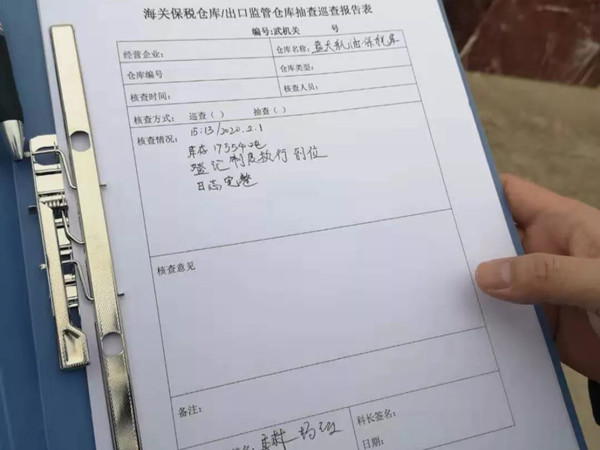 海关保税仓库/出口监管仓库抽查巡查报告表
编号:武机关 号
经营企业: 仓库名称: 蓝天航油保税库
仓库编号 仓库类型:
核查时间: 核查人员:
核查方式: 巡查( ) 抽查( )
核查情况: 15:13/2020.2.1
库存17354.2吨
登记制度执行到位
日志完整
核查意见
备注:
签名: 科长签名:
日期: